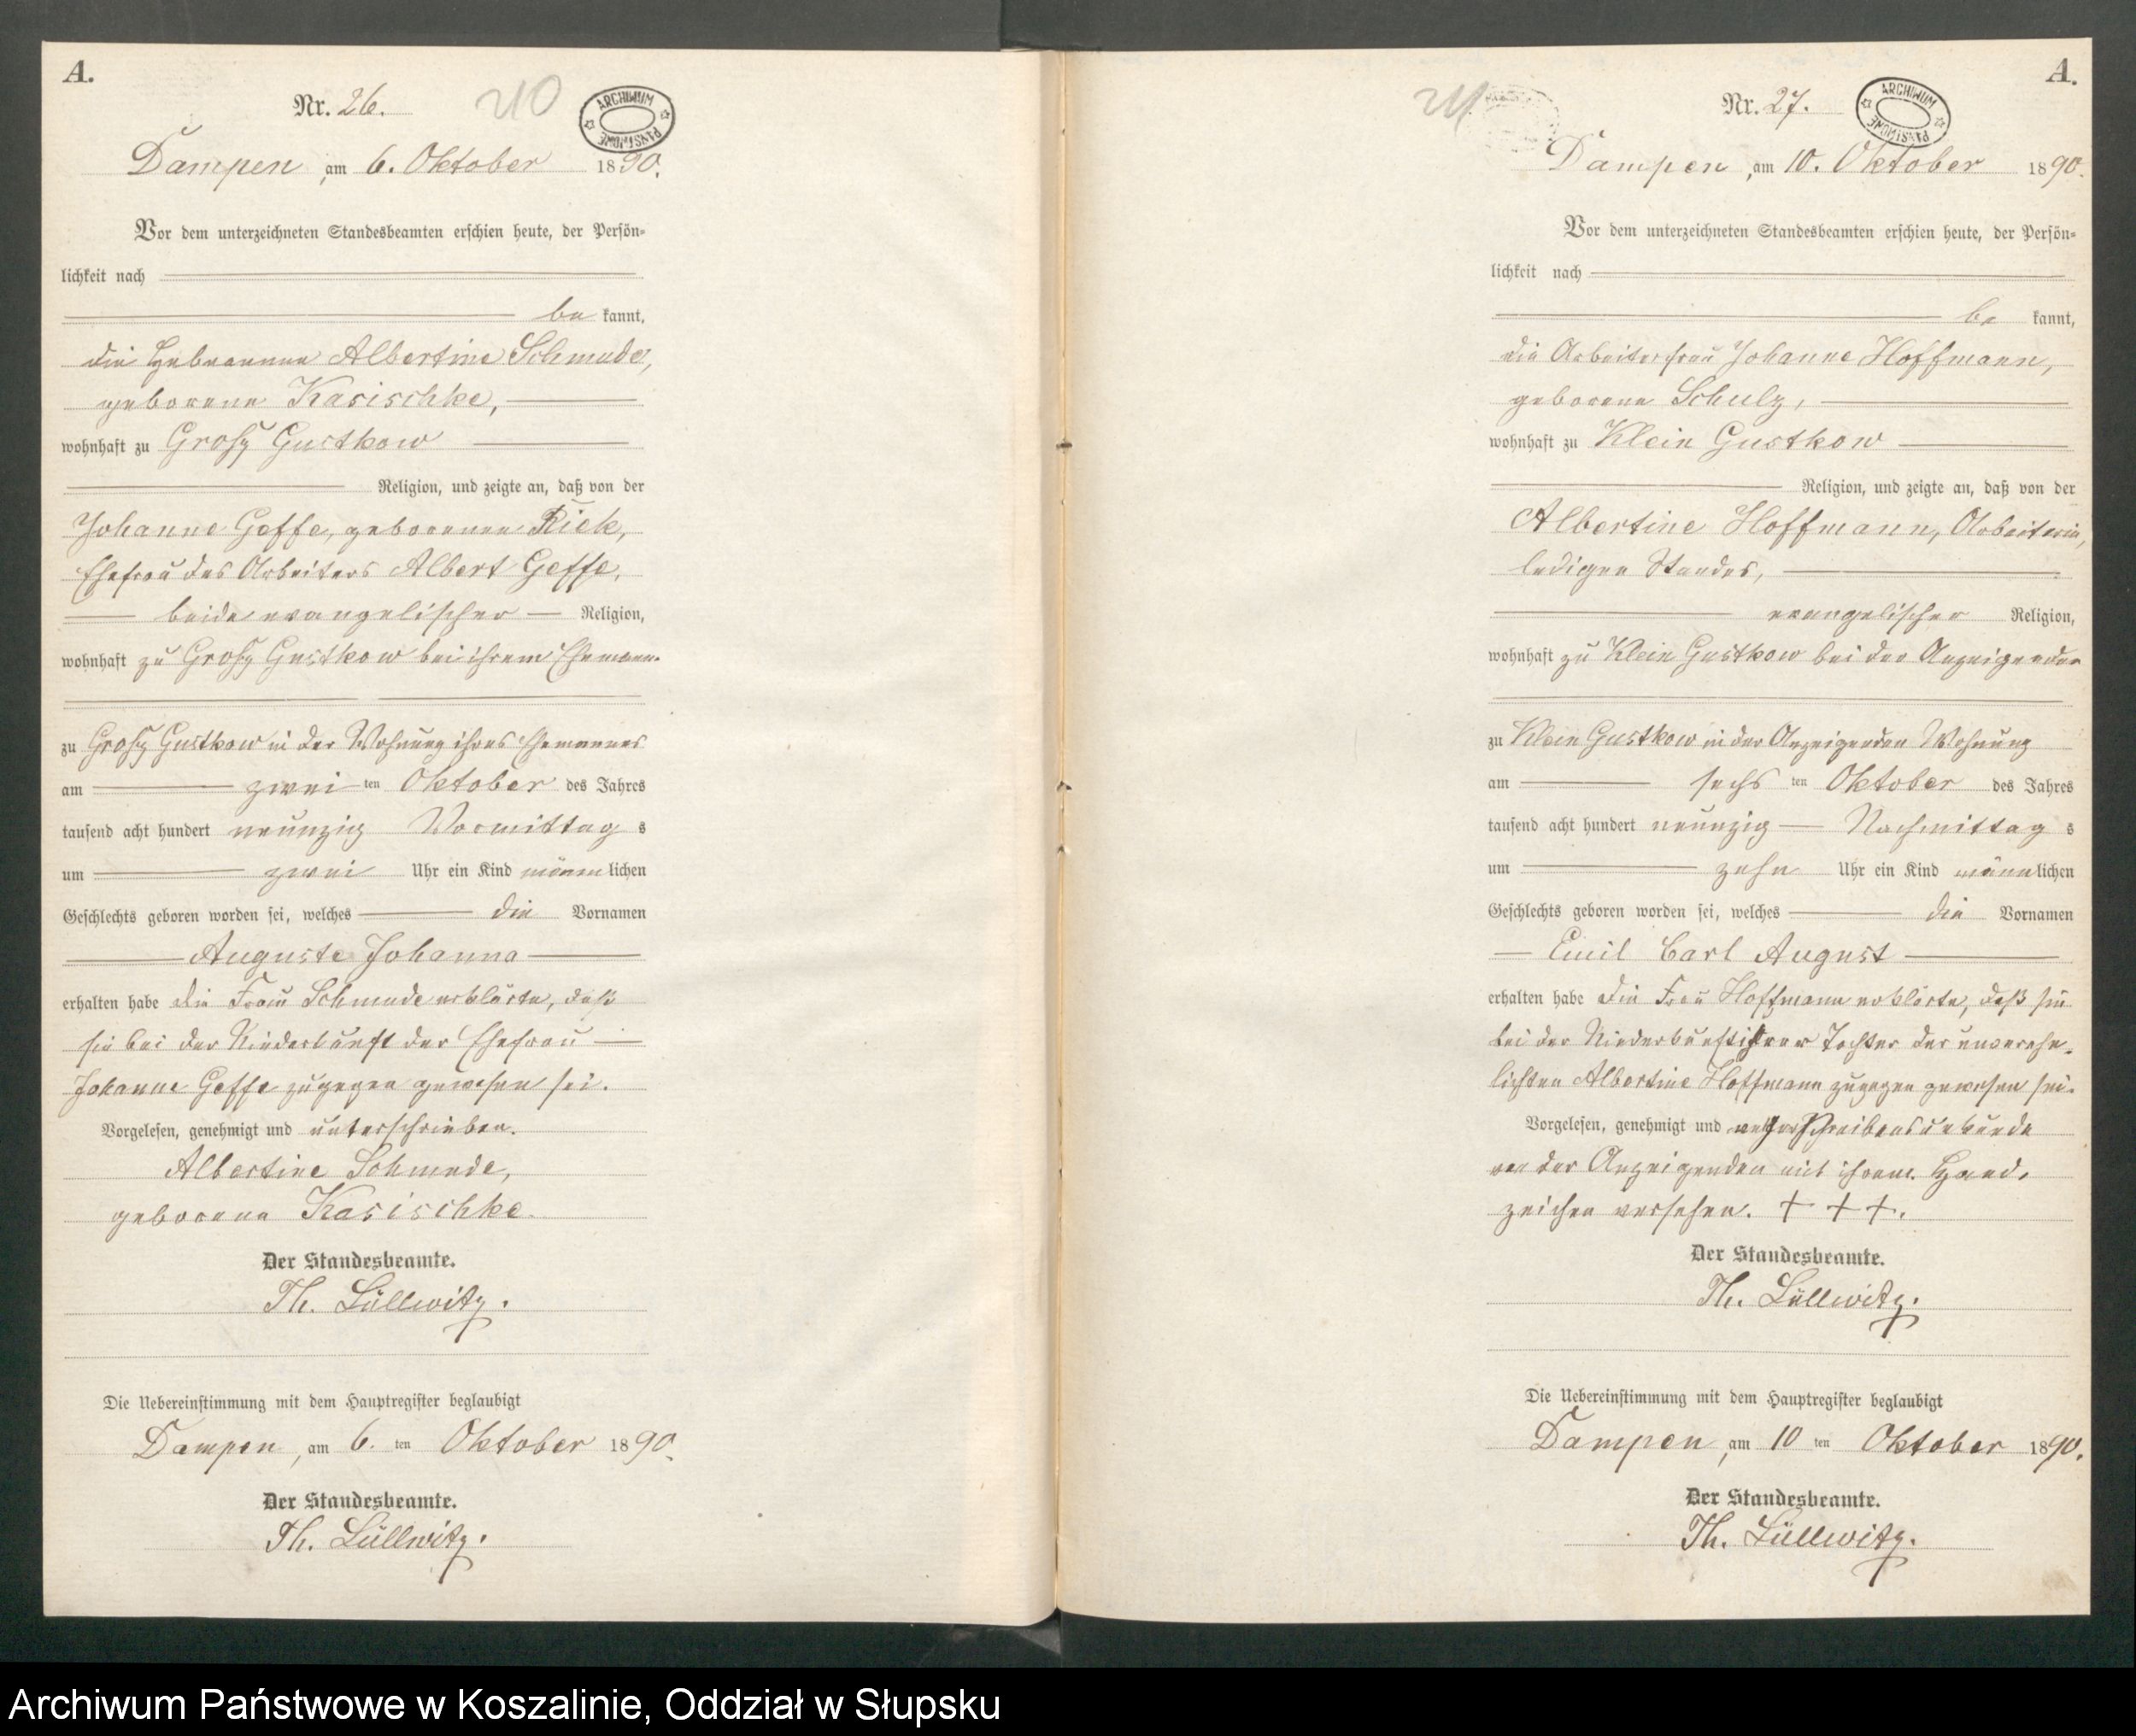 A.
Nr. 26.
210
ARCHIWUM PAŃSTWOWE
Dampen, am 6. Oktober 1890.
Vor dem unterzeichneten Standesbeamten erschien heute, der Persön-
lichkeit nach
be kannt,
die Hebeamme Albertine Schmude,
geborene Kasischke,
wohnhaft zu Groß Gustkow
Religion, und zeigte an, daß von der
Johanne Geffe, geborenen Rick,
Ehefrau des Arbeiters Albert Geffe,
beide evangelischer Religion,
wohnhaft zu Groß Gustkow bei ihrem Ehemann
zu Groß Gustkow in der Wohnung ihres Ehemannes
am zwei ten Oktober des Jahres
tausend acht hundert neunzig Vormittag s
um zwei Uhr ein Kind männ lichen
Geschlechts geboren worden sei, welches die Vornamen
Auguste Johanna
erhalten habe die Frau Schmude erklärte, daß
sie bei der Niederkunft der Ehefrau
Johanne Geffe zugegen gewesen sei.
Vorgelesen, genehmigt und unterschrieben.
Albertine Schmude,
geborene Kasischke.
Der Standesbeamte.
Th. Lüllwitz.
Die Uebereinstimmung mit dem Hauptregister beglaubigt
Dampen, am 6. ten Oktober 1890.
Der Standesbeamte.
Th. Lüllwitz.
A.
Nr. 27.
ARCHIWUM PAŃSTWOWE
Dampen, am 10. Oktober 1890.
Vor dem unterzeichneten Standesbeamten erschien heute, der Persön-
lichkeit nach
be kannt,
die Arbeiterfrau Johanne Hoffmann,
geborene Schulz,
wohnhaft zu Klein Gustkow
Religion, und zeigte an, daß von der
Albertine Hoffmann, Arbeiterin,
ledigen Standes,
evangelischer Religion,
wohnhaft zu Klein Gustkow bei der Anzeigenden
zu Klein Gustkow in der Anzeigenden Wohnung
am sechs ten Oktober des Jahres
tausend acht hundert neunzig Nachmittag s
um zehn Uhr ein Kind männ lichen
Geschlechts geboren worden sei, welches die Vornamen
Emil Carl August
erhalten habe die Frau Hoffmann erklärte, daß sie
bei der Niederkunft ihrer Tochter der unverehe-
lichten Albertine Hoffmann zugegen gewesen sei.
Vorgelesen, genehmigt und Schreibensunkunde
von der Anzeigenden mit ihrem Hand-
zeichen versehen. + + +.
Der Standesbeamte.
Th. Lüllwitz.
Die Uebereinstimmung mit dem Hauptregister beglaubigt
Dampen, am 10 ten Oktober 1890.
Der Standesbeamte.
Th. Lüllwitz.
Archiwum Państwowe w Koszalinie, Oddział w Słupsku